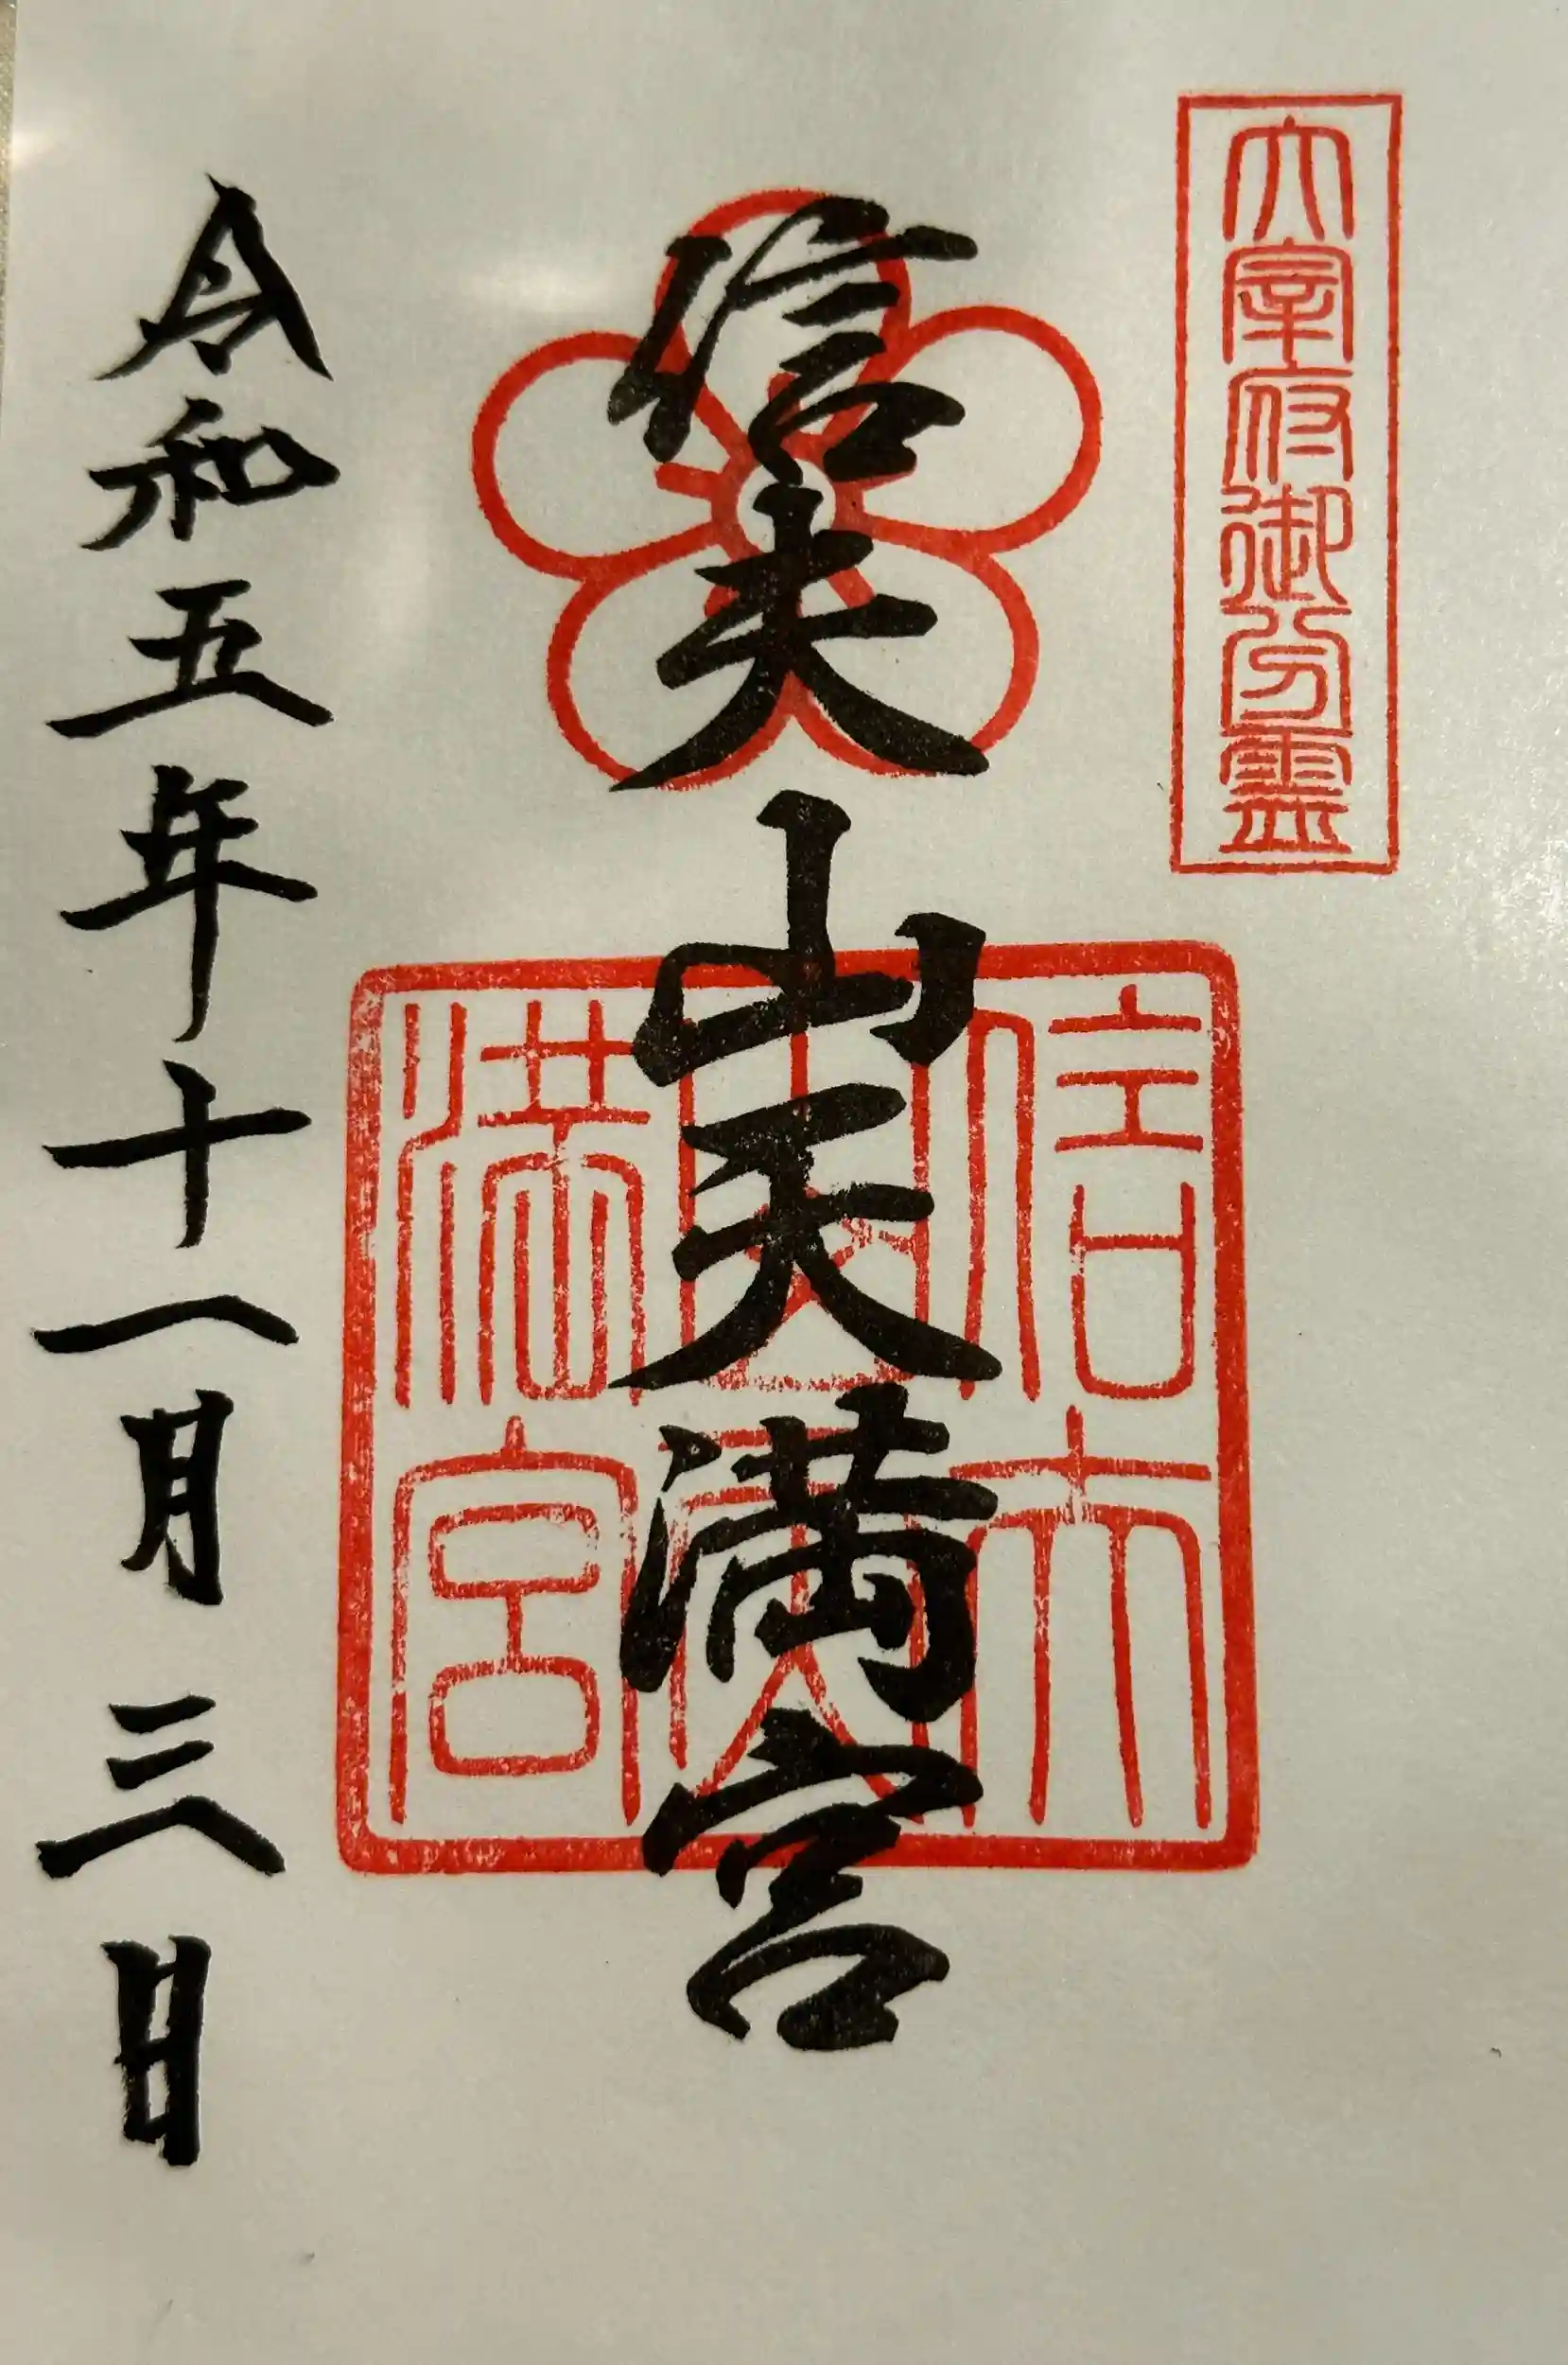 大宰府御分霊
信夫山天満宮
信夫
山天
満宮
令和五年十一月三日